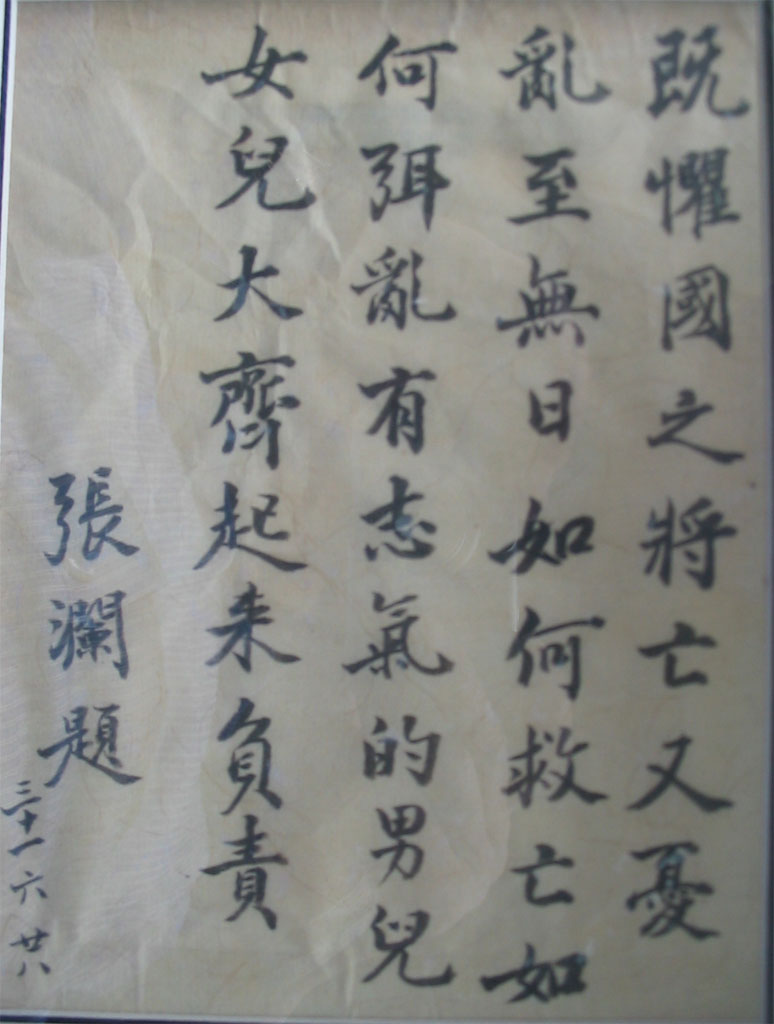 既懼國之將亡又憂
亂至無日如何救亡如
何弭亂有志氣的男兒
女兒大齊起来負責
張瀾題
三十一六廿八